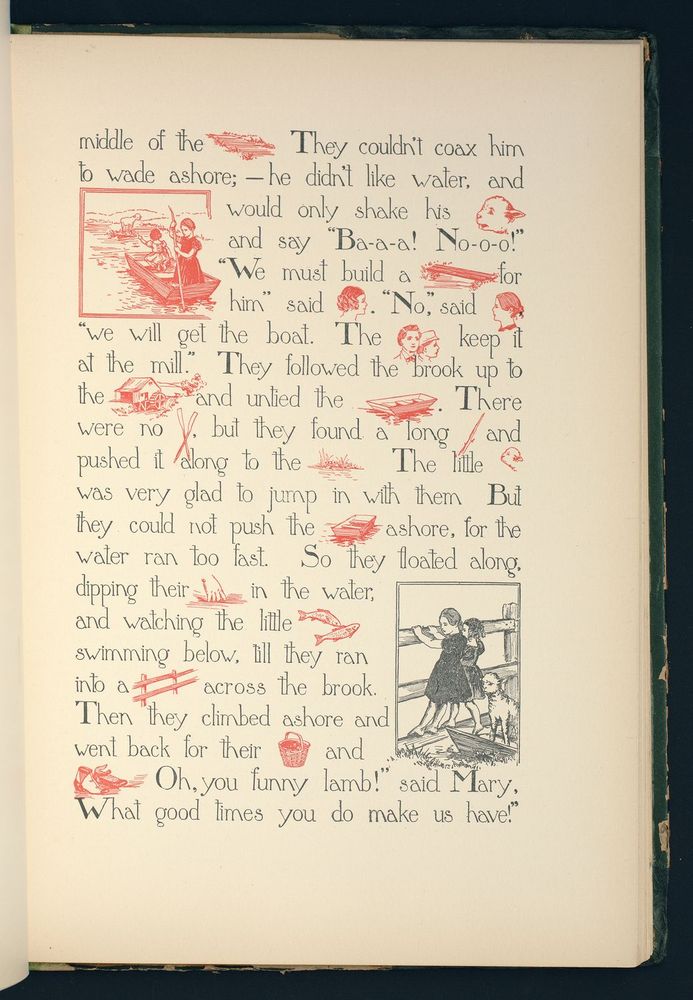 middle of the They couldn't coax him
to wade ashore; — he didn't like water, and
would only shake his
and say "Ba-a-a! No-o-o!"
"We must build a for
him" said . "No," said ,
"we will get the boat. The keep it
at the mill." They followed the brook up to
the and untied the . There
were no , but they found a long and
pushed it along to the The little
was very glad to jump in with them But
they could not push the ashore, for the
water ran too fast. So they floated along,
dipping their in the water,
and watching the little
swimming below, till they ran
into a across the brook.
Then they climbed ashore and
went back for their and
Oh, you funny lamb!" said Mary,
What good times you do make us have!"